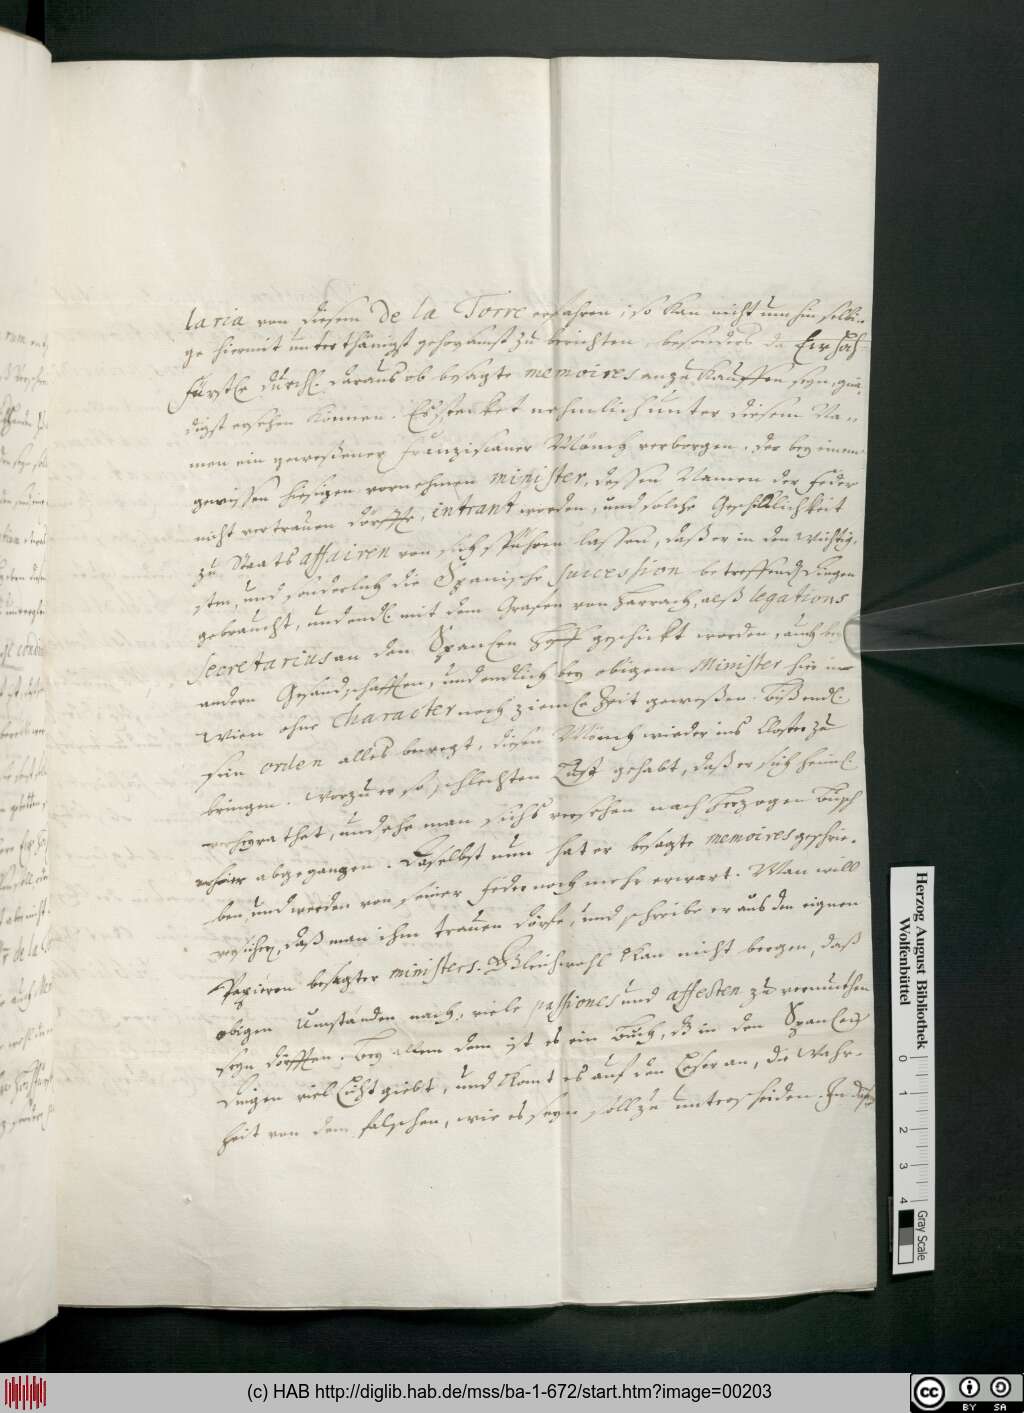 laria von diesem De la Torre erfahren; so kan nicht umhin selbi-
ge hiermit unterthänigst gehorsamst zu berichten, besonders da Ew: Hoch-
Fürstle. Durchl. daraus ob besagte memoires anzukauffen seyn, gnä-
digst ersehen können. Es stecket nehmlich unter diesem Na-
men ein gewesener Franziscaner Mönch verborgen, der bey einem
gewissen hiesigen vornehmen minister, dessen Namen der Feder
nicht vertrauen dörffte, intrant worden, und solche Geschicklichkeit
zu Staats affairen von sich spühren lassen, daß er in den wichtig-
sten, und sonderlich die Spanische succession betreffend Dingen
gebraucht, und endl. mit dem Grafen von Harrach, alß legations
Secretarius an den Spanschen Hoff geschickt worden, auch bey
andern Gesandschafften, und endlich bey obigem Minister hier in
Wien ohne character noch ziemle Zeit gewesen. Biß endl.
sein orden alles bewegt, diesen Mönch wieder ins Closter zu
bringen. Worzu er so schlechten Lust gehabt, daß er sich heiml.
verheyrathet, und ehe man sichs versehen nach Herzogen Busch
abgegangen. Daselbst nun hat er besagte memoires geschrie-
ben, und werden von seiner Feder noch mehr erwart. Man will
versichern, daß man ihm trauen dörfe, und schreibe er aus den eignen
Papieren besagter ministers. Gleichwohl kan nicht bergen, daß
obigen Umständen nach, viele passiones und affecten zu vermuthen
seyn dörfften. Bey allem dem ist es ein Buch, dß in den Spanschen
Dingen viel Licht giebt, und komt es auf den Leser an, die Wahr-
heit von dem falschen, wie es seyn soll zu unterscheiden. In
Herzog August Bibliothek
Wolfenbüttel
0 1 2 3 4
Gray Scale
(c) HAB http://diglib.hab.de/mss/ba-1-672/start.htm?image=00203
cc BY SA